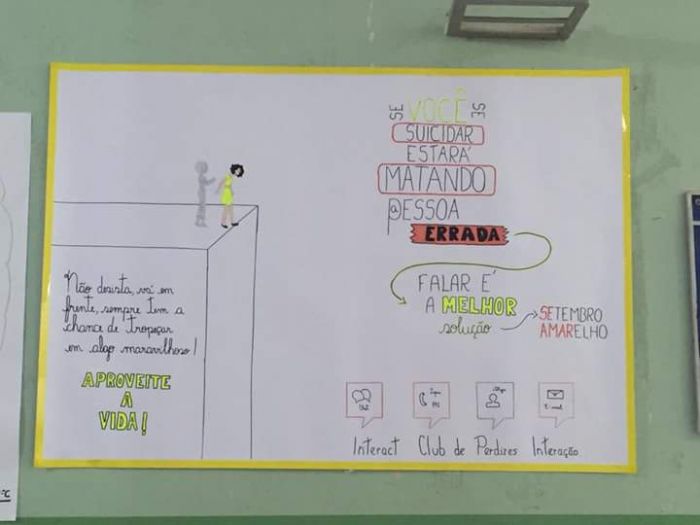 Não desista, vai em
frente, sempre tem a
chance de tropeçar
em algo maravilhoso!
APROVEITE
A
VIDA!
SE VOCÊ SE
SUICIDAR
ESTARÁ
MATANDO
A PESSOA
ERRADA
FALAR É
A MELHOR
solução
SETEMBRO
AMARELHO
Interact Club de Perdizes Interação